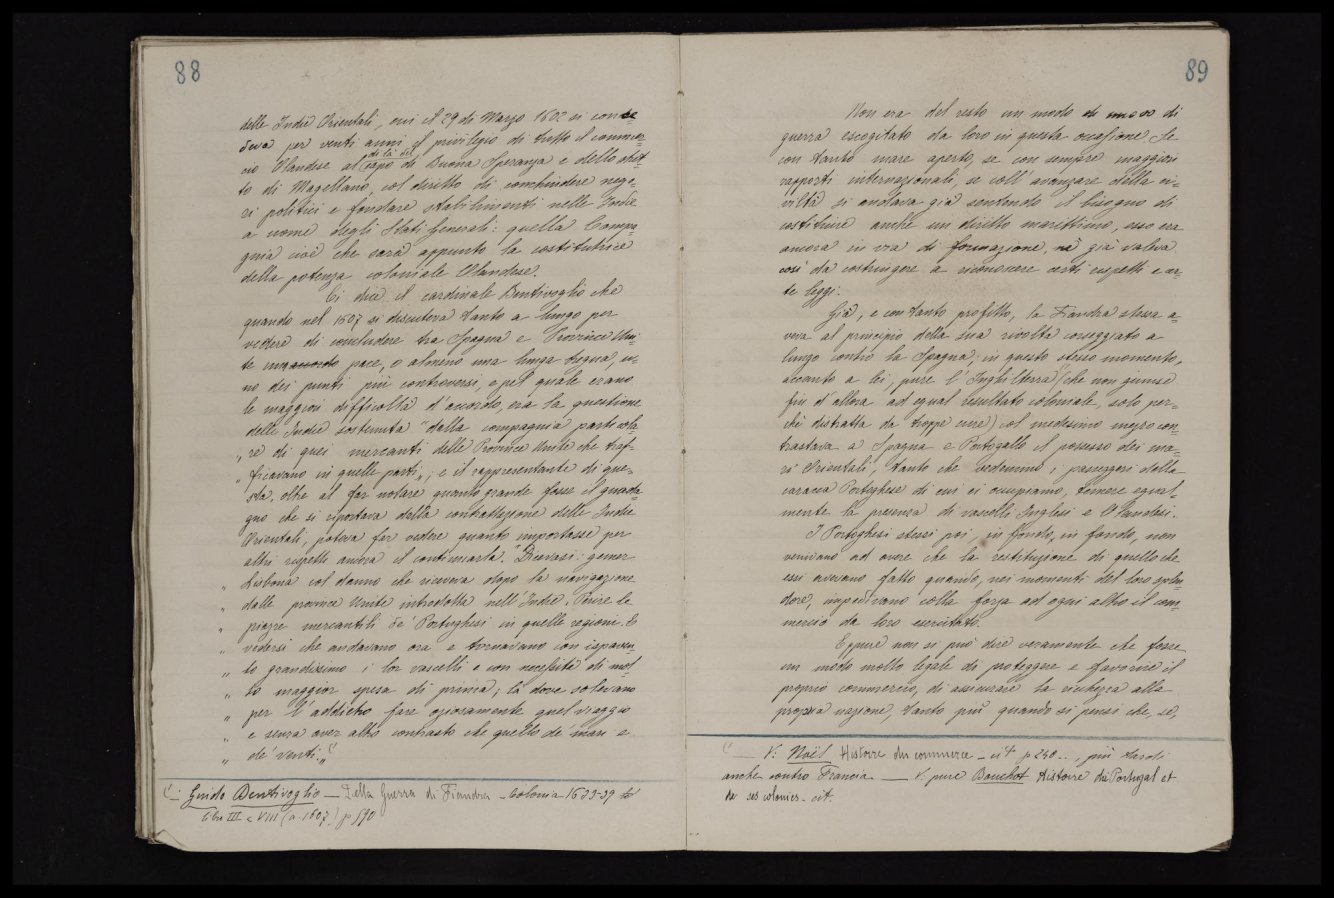 88
delle Indie Orientali, cui il 29 di Marzo 1602 si conce=
deva per venti anni il privilegio di tutto il commer=
cio Olandese al di là del Capo di Buona Speranza e dello stret
to di Magellano, col diritto di conchiudere nego=
zi politici e fondare stabilimenti nelle Indie
a nome degli Stati Generali: quella Compa=
gnia cioè che sarà appunto la costitutrice
della potenza coloniale Olandese.
Ci dice il cardinale Bentivoglio che
quando nel 1607 si discuteva tanto a lungo per
vedere di concludere tra Spagna e Provincie Uni=
te un accordo pace, o almeno una lunga tregua, u=
no dei punti più controversi, e pel quale erano
le maggiori difficoltà d'accordo, era la questione
delle Indie sostenuta "dalla compagnia particola
„ re di quei mercanti delle Provincie Unite che traf=
„ ficavano in quelle parti„; e il rappresentante di que=
sta, oltre al far notare quanto grande fosse il guada=
gno che si riportava dalla contrattazione delle Indie
Orientali, poteva far vedere quanto importasse per
altri rispetti ancora il continuarla. "Dicevasi: gemer
„ Lisbona col danno che riceveva dopo la navigazione
„ dalle provincie Unite introdotta nell'Indie. Perire le
„ piazze mercantili de' Portughesi in quelle regioni. E
„ vedersi che andavano ora e tornavano con ispaven=
„ to grandissimo i lor vascelli e con necessità di mol
„ to maggior spesa di prima; là dove solevano
„ per l'addietro fare oziosamente quel viaggio
„ e senza aver altro contrasto che quello de' mari e
„ de' venti.„ (1
(1 Guido Bentivoglio — Della Guerra di Fiandra - Colonia - 1633-39
Libro III c VIII (a. 1607) p 590
89
Non era del resto un modo di nuovo di
guerra escogitato da loro in questa occasione. Se
con tanto mare aperto, se con sempre maggiori
rapporti internazionali, se coll'avanzare della ci=
viltà si andava già sentendo il bisogno di
costituire anche un diritto marittimo, esso era
ancora in via di formazione, nè già valeva
così da costringere a riconoscere certi rispetti e cer=
te leggi.
Già, e con tanto profitto, la Fiandra stessa a=
veva al principio della sua rivolta corseggiato a
lungo contro la Spagna; in questo stesso momento,
accanto a lei, pure l'Inghilterra (che non giunse
fin d'allora ad egual resultato coloniale, solo per=
chè distratta da troppe cure) col medesimo mezzo con=
trastava a Spagna e Portogallo il possesso dei ma=
ri Orientali, tanto che vedemmo i passeggeri della
caracca Portoghese di cui ci occupiamo, temere egual=
mente la presenza di vascelli Inglesi e Olandesi.
I Portoghesi stessi poi, in fondo, in fondo, non
venivano ad avere che la restituzione di quello che
essi avevano fatto quando, nei momenti del loro splen
dore, impedivano colla forza ad ogni altro il com=
mercio da loro esercitato.
Eppure non si può dire veramente che fosse
un modo molto legale di proteggere e favorire il
proprio commercio, di assicurare la ricchezza alla
propria nazione, tanto più quando si pensi che, se,
(1 — V: Noël Histoire du commerce - cit p 240 .. , più tardi
anche contro Francia — V. pure Bouchot Histoire du Portugal et
de ses colonies - cit.